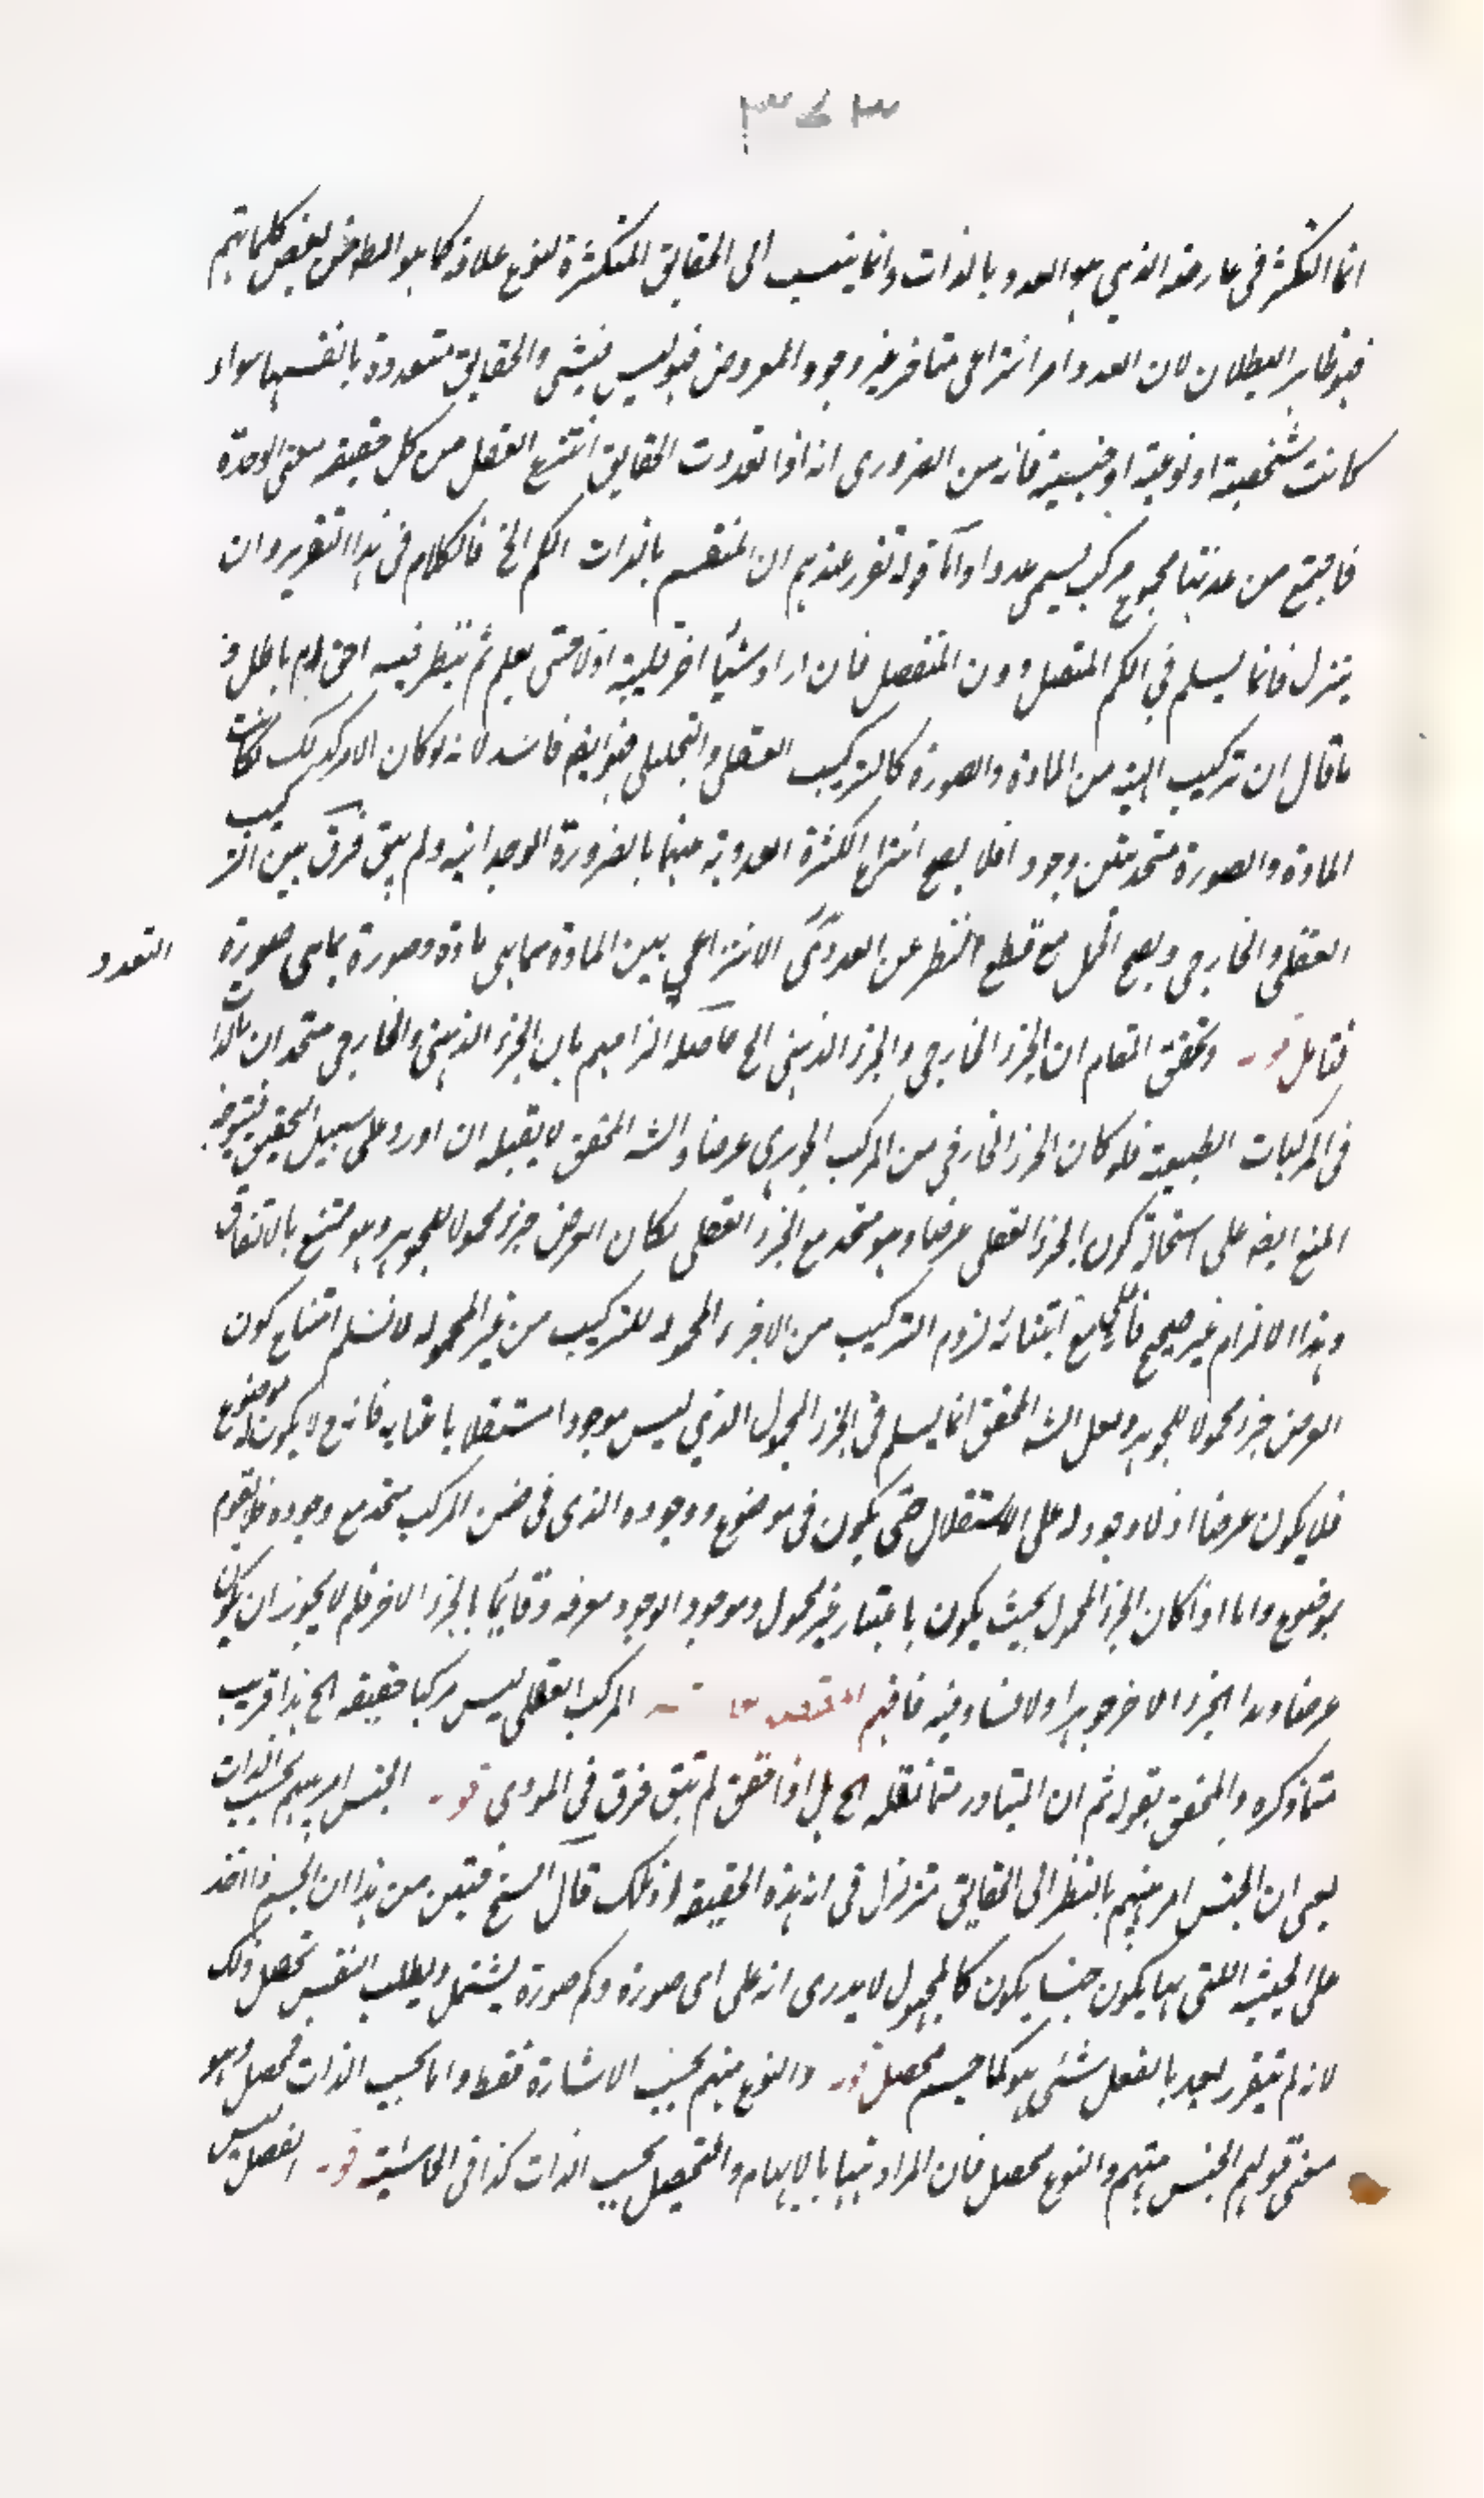 انما التكثر فى عارضه الذي هو العدد بالذات وانما ينسب الى الحقايق المتكثرة لنوع علاقة كما هو المطوى لبعض كلماتهم
فهو ظاهر البطلان لان العدد امر انتزاعى متاخر عن وجود المعروض فهو ليس بشئ والحقايق متعددة بانفسها سواء
كانت شخصية او نوعية او جنسية فانه من الضرورى انه اذا تعددت الحقايق انتزع العقل من كل حقيقة معنى الوحدة
فاجتمع من عدتها مجموع مركب يسمى عددا واما قوله تقرر عندهم ان المنقسم بالذات الكم الخ فالكلام فى هذا التقرير وان
يتنزل فانما يسلم في الكم المتصل دون المنفصل فان اراد شيئا اخر فليبينه اولا حتى يعلم ثم ينظر فيه احق ام باطل و
ما قال ان تركيب الهية من المادة والصورة كالتركيب العقلى والتحليلى فهو ايضا فاسد لانه لو كان الامر كذلك لكانت
المادة والصورة متحدتين وجودا فلا يصح انتزاع الكثرة العددية منهما بالضرورة الوجدانية ولم يبق فرق بين التركيب
العقلى والخارجى ويصح الحمل مع قطع النظر عن العددى الانتزاعي بين المادة بما هى مادة وصورة بما هى صورة
التعدد
فتامل قوله وتحقق المقام ان الجزء الخارجى والجزء الذهنى الخ حاصله الزامهم بان الجزء الذهنى والخارجى متحدان بالذات
فى المركبات الطبيعية فلو كان الجزء الخارجى من المركب الجوهرى عرضا والشه المحقق لا يقبله ان اورد على سبيل التحقيق فيتوجه
المنع ايضا على استحالة كون الجزء العقلى عرضا وهو متحد مع الجزء العقلى لكان العرض جزء محمولا للجوهر وهو ممتنع بالاتفاق
وهذا الالزام غير صحيح مع ابتنائه لزوم التركيب من الاجزاء المحمولة للتركيب من غير المحمولة لا نسلم امتناع كون
العرض جزء محمولا للجوهر ولعل الشه المحقق انما يسلم فى الجزء المحمول الذي ليس موجودا مستقلا باعتباره فانه ح لا يكون له موضوع
فلا يكون عرضا اذ لا وجود له على الاستقلال حتى يكون فى موضوع ووجوده الذى فى ضمن المركب متحد مع وجوده فلا يقوم
بموضوع واما اذا كان الجزء المحمول بحيث يكون باعتبار غير محمول وموجود الوجود معرفه وقايما بالجزء الاخر فلم لا يجوز ان يكون
عرضا وهذا الجزء الاخر جوهرا ولا فساد فيه فافهم قوله المركب العقلى ليس مركبا حقيقة الخ هذا قريب
مما ذكره المحقق بقوله ثم ان المتبادر مما نقله الخ بل اذا حقق لم يبق فرق في المودى قوله الجنس امر مبهم بحسب الذات
يعنى ان الجنس امر مبهم بالنظر الى الحقايق متزلزل فى انه هذه الحقيقة او تلك قال الشيخ فتبين من هذا ان الجسم اذا اخذ
على الجهة التى بها يكون جنسا يكون كالمجهول لا يدرى انه على اى صورة وكم صورة يشتمل ويطلب النفس تحصل ذلك
لانه لم يتقرر بعد بالفعل شئ هو كما جسم محصل قوله والنوع مبهم بحسب الاشارة فقط واما بحسب الذات فمحصل وهو
معنى قولهم الجنس مبهم والنوع محصل فان المراد ههنا بالابهام والتحصيل بحسب الذات كذا فى الحاشية قوله الفصل ليس